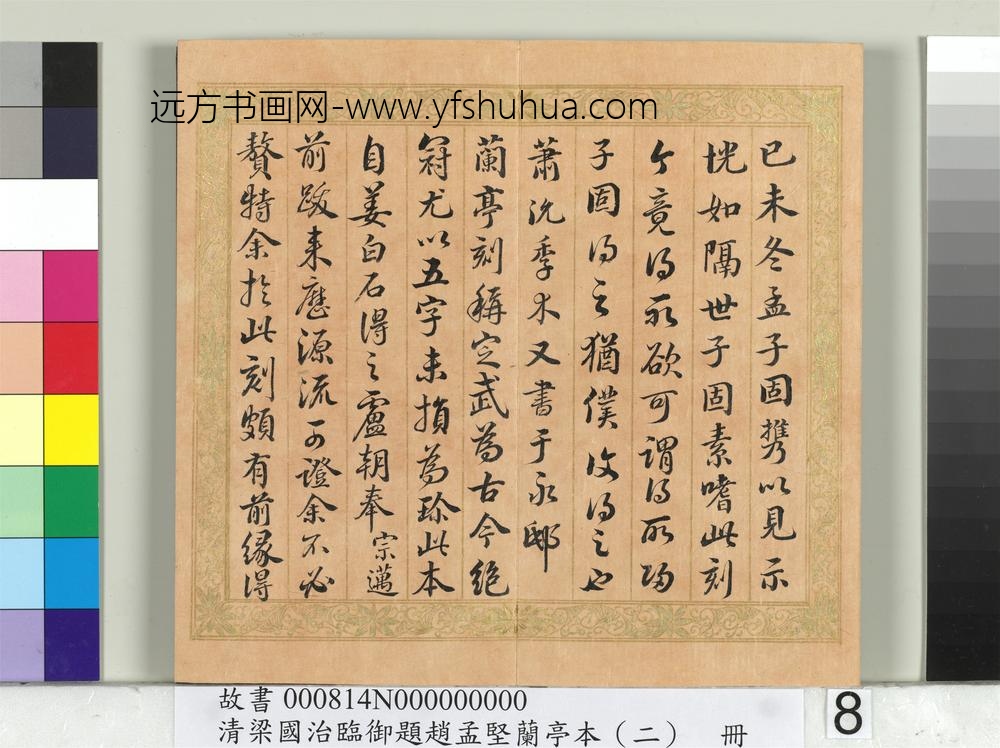 远方书画网-www.yfshuhua.com
已未冬孟子固携以見示
恍如隔世子固素嗜此刻
今竟得所欲可謂得所歸
子固得之猶僕復得之也
蕭沇季木又書于永邸
蘭亭刻稱定武為古今絕
冠尤以五字未損為珍此本
自姜白石得之盧朝奉宗邁
前跋来歷源流可證余不必
贅特余於此刻頗有前緣得
故書 000814N000000000
清梁國治臨御題趙孟堅蘭亭本（二） 冊
8